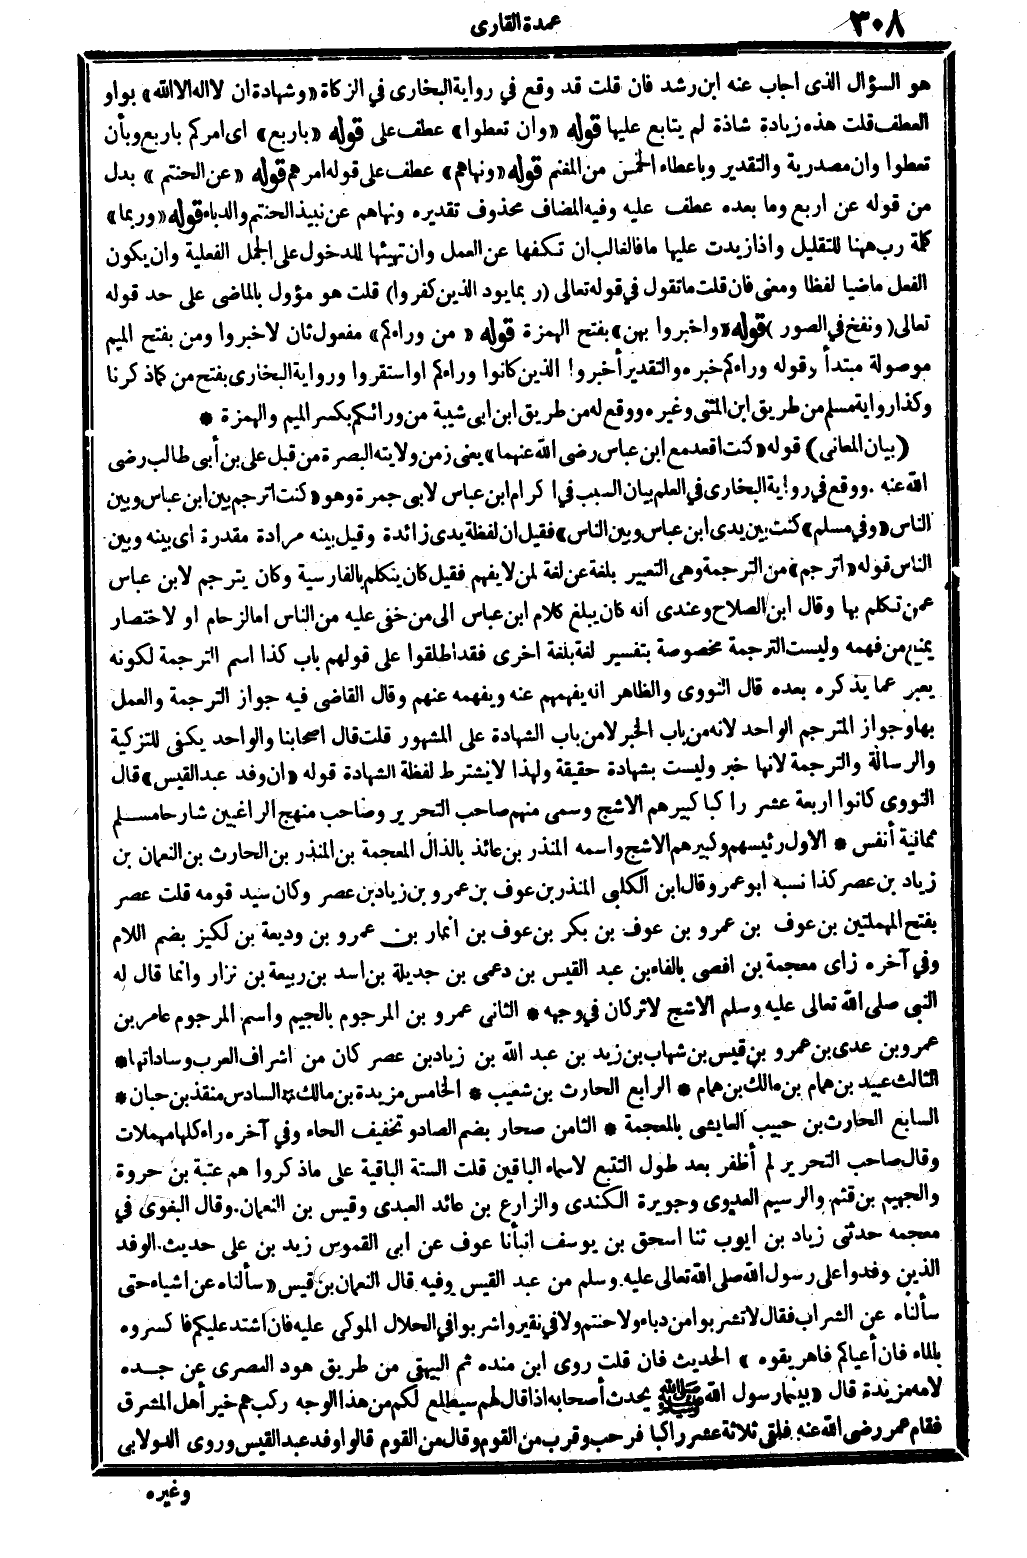 ٣٠٨
عمدة القارى
هو السؤال الذى اجاب عنه ابن رشد فان قلت قد وقع في رواية البخارى في الزكاة «وشهادة ان لا اله الا الله» بواو
العطف قلت هذه زيادة شاذة لم يتابع عليها قوله «وان تعطوا» عطف على قوله «باربع» اى امركم باربع وبأن
تعطوا وان مصدرية والتقدير وباعطاء الخمس من المغنم قوله «ونهاهم» عطف على قوله امرهم قوله «عن الحنتم» بدل
من قوله عن اربع وما بعده عطف عليه وفيه المضاف محذوف تقديره ونهاهم عن نبيذ الحنتم والدباء قوله «وربما»
كلمة رب ههنا للتقليل واذا زيدت عليها ما فالغالب ان تكفها عن العمل وان تهيئها للدخول على الجمل الفعلية وان يكون
الفعل ماضيا لفظا ومعنى فان قلت ما تقول في قوله تعالى (ربما يود الذين كفروا) قلت هو مؤول بالماضى على حد قوله
تعالى (ونفخ في الصور) قوله «واخبروا بهن» بفتح الهمزة قوله « من وراءكم» مفعول ثان لاخبروا ومن بفتح الميم
موصولة مبتدأ وقوله وراءكم خبره والتقدير أخبروا الذين كانوا وراءكم او استقروا ورواية البخارى بفتح من كما ذكرنا
وكذا رواية مسلم من طريق ابن المثنى وغيره ووقع له من طريق ابن ابى شيبة من ورائكم بكسر الميم والهمزة *
(بيان المعانى) قوله «كنت اقعد مع ابن عباس رضى الله عنهما» يعنى زمن ولايته البصرة من قبل على بن أبى طالب رضى
الله عنه . ووقع في رواية البخارى في العلم بيان السبب في اكرام ابن عباس لابى جمرة وهو «كنت اترجم بين ابن عباس وبين
الناس «وفي مسلم» كنت بين يدى ابن عباس وبين الناس» فقيل ان لفظة يدى زائدة وقيل بينه مرادة مقدرة اى بينه وبين
الناس قوله «اترجم» من الترجمة وهى التعبير بلغة عن لغة لمن لا يفهم فقيل كان يتكلم بالفارسية وكان يترجم لابن عباس
عمن تكلم بها وقال ابن الصلاح وعندى انه كان يبلغ كلام ابن عباس الى من خفى عليه من الناس اما لزحام او لاختصار
يمنع من فهمه وليست الترجمة مخصوصة بتفسير لغة بلغة اخرى فقد اطلقوا على قولهم باب كذا اسم الترجمة لكونه
يعبر عما يذكره بعده قال النووى والظاهر انه يفهمهم عنه ويفهمه عنهم وقال القاضى فيه جواز الترجمة والعمل
بها وجواز المترجم الواحد لانه من باب الخبر لا من باب الشهادة على المشهور قلت قال اصحابنا والواحد يكفى للتزكية
والرسالة والترجمة لانها خبر وليست بشهادة حقيقة ولهذا لا يشترط لفظة الشهادة قوله «ان وفد عبد القيس» قال
النووى كانوا اربعة عشر راكبا كبيرهم الاشج وسمى منهم صاحب التحرير وصاحب منهج الراغبين شارحا مسلم
ثمانية أنفس * الاول رئيسهم وكبيرهم الاشج واسمه المنذر بن عائذ بالذال المعجمة بن المنذر بن الحارث بن النعمان بن
زياد بن عصر كذا نسبه ابو عمر وقال ابن الكلبى المنذر بن عوف بن عمرو بن زياد بن عصر وكان سيد قومه قلت عصر
بفتح المهملتين بن عوف بن عمرو بن عوف بن بكر بن عوف بن انمار بن عمرو بن وديعة بن لكيز بضم اللام
وفي آخره زاى معجمة بن افصى بالفاء بن عبد القيس بن دعمى بن جديلة بن اسد بن ربيعة بن نزار وانما قال له
النبى صلى الله تعالى عليه وسلم الاشج لاثر كان في وجهه * الثانى عمرو بن المرجوم بالجيم واسم المرجوم عامر بن
عمرو بن عدى بن عمرو بن قيس بن شهاب بن زيد بن عبد الله بن زياد بن عصر كان من اشراف العرب وساداتها *
الثالث عبيد بن همام بن مالك بن همام * الرابع الحارث بن شعيب * الخامس مزيدة بن مالك * السادس منقذ بن حبان *
السابع الحارث بن حبيب العايشى بالمعجمة * الثامن صحار بضم الصاد وتخفيف الحاء وفي آخره راء كلها مهملات
وقال صاحب التحرير لم أظفر بعد طول التتبع لاسماء الباقين قلت الستة الباقية على ما ذكروا هم عتبة بن حروة
والجهيم بن قثم والرسيم العدوى وجويرة الكندى والزارع بن عائد العبدى وقيس بن النعمان . وقال البغوى في
معجمه حدثنى زياد بن ايوب ثنا اسحق بن يوسف انبأنا عوف عن ابى القموس زيد بن على حديث . الوفد
الذين وفدوا على رسول الله صلى الله تعالى عليه وسلم من عبد القيس وفيه قال النعمان بن قيس «سألناه عن اشياء حتى
سألناه عن الشراب فقال لا تشربوا من دباء ولا حنتم ولا في نقير واشربوا في الحلال الموكى عليه فان اشتد عليكم فاكسروه
بالماء فان أعياكم فاهريقوه » الحديث فان قلت روى ابن منده ثم البيهقى من طريق هود العصرى عن جده
لامه مزيدة قال «بينما رسول الله صلى الله عليه وسلم يحدث أصحابه اذ قال لهم سيطلع لكم من هذا الوجه ركب هم خير أهل المشرق
فقام عمر رضى الله عنه فلقى ثلاثة عشر راكبا فرحب وقرب من القوم وقال من القوم قالوا وفد عبد القيس وروى الدولابى
وغيره